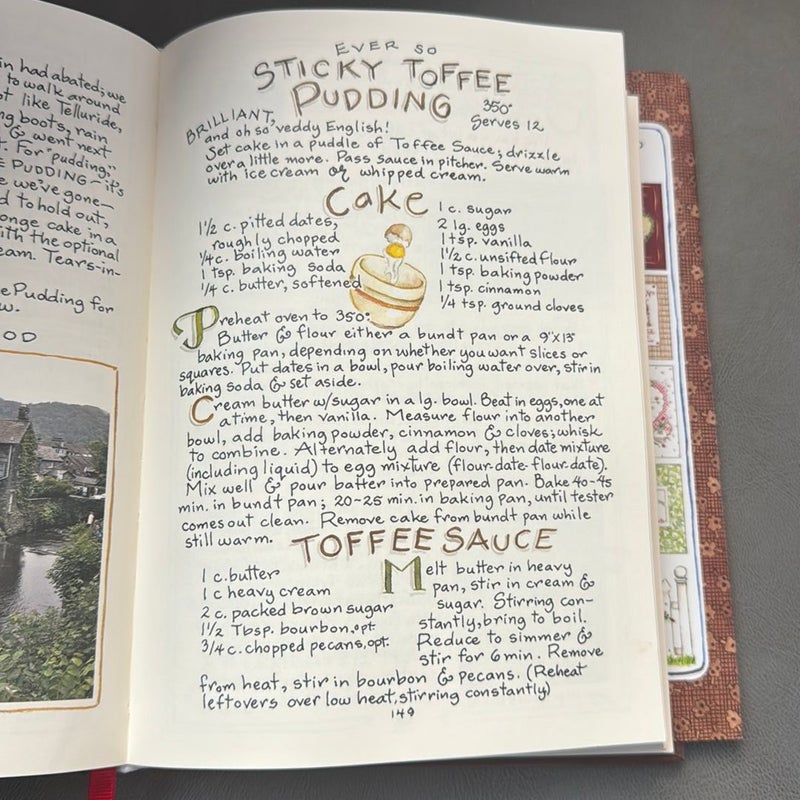 in had abated; we
to walk around
t like Telluride,
ng boots, rain
& went next
t. For "pudding,"
E PUDDING — it's
e we've gone—
d to hold out,
onge cake in a
ith the optional
eam. Tears-in-
e Pudding for
w.
OD
EVER SO
STICKY TOFFEE
PUDDING
350°
Serves 12
BRILLIANT,
and oh so 'veddy English!
Set cake in a puddle of Toffee Sauce; drizzle
over a little more. Pass sauce in pitcher. Serve warm
with ice cream or whipped cream.
Cake
1½ c. pitted dates,
roughly chopped
¼ c. boiling water
1 tsp. baking soda
¼ c. butter, softened
1 c. sugar
2 lg. eggs
1 tsp. vanilla
1½ c. unsifted flour
1 tsp. baking powder
1 tsp. cinnamon
¼ tsp. ground cloves
Preheat oven to 350°.
Butter & flour either a bundt pan or a 9"x13"
baking pan, depending on whether you want slices or
squares. Put dates in a bowl, pour boiling water over, stir in
baking soda & set aside.
Cream butter w/sugar in a lg. bowl. Beat in eggs, one at
a time, then vanilla. Measure flour into another
bowl, add baking powder, cinnamon & cloves; whisk
to combine. Alternately add flour, then date mixture
(including liquid) to egg mixture (flour-date-flour-date).
Mix well & pour batter into prepared pan. Bake 40-45
min. in bundt pan; 20-25 min. in baking pan, until tester
comes out clean. Remove cake from bundt pan while
still warm.
TOFFEE SAUCE
1 c. butter
1 c heavy cream
2 c. packed brown sugar
1½ Tbsp. bourbon, opt.
¾ c. chopped pecans, opt.
Melt butter in heavy
pan, stir in cream &
sugar. Stirring con-
stantly, bring to boil.
Reduce to simmer &
stir for 6 min. Remove
from heat, stir in bourbon & pecans. (Reheat
leftovers over low heat, stirring constantly)
149